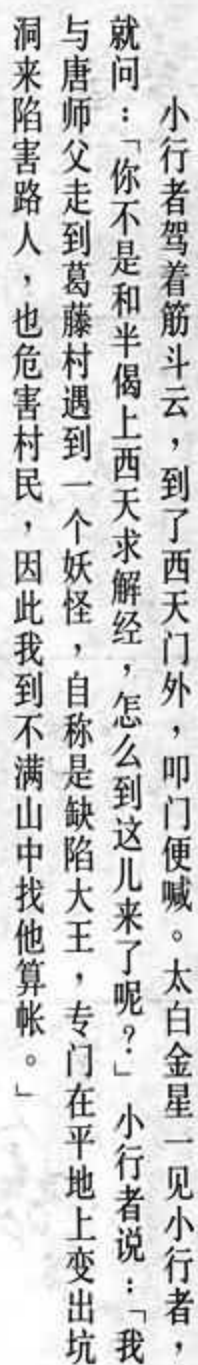 小行者驾着筋斗云，到了西天门外，叩门便喊。太白金星一见小行者，
就问：「你不是和半偈上西天求解经，怎么到这儿来了呢？」小行者说：「我
与唐师父走到葛藤村遇到一个妖怪，自称是缺陷大王，专门在平地上变出坑
洞来陷害路人，也危害村民，因此我到不满山中找他算帐。」